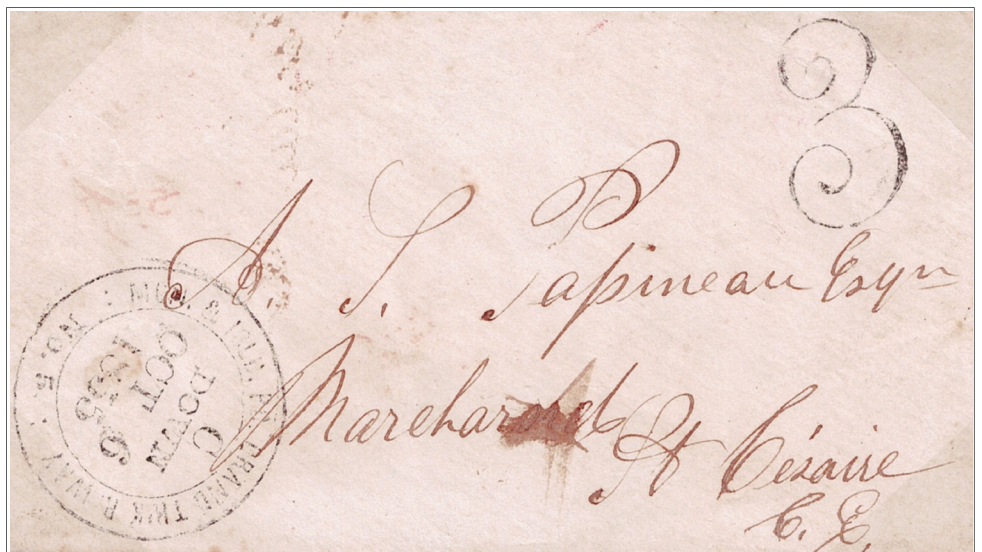 3
A. S. Papineau Esqre
Marchand
St Césaire
C. E.
MON. & ISLD. P. GRAND TR'K R. WAY
No. 5
C
DOWN
OCT 6
1856